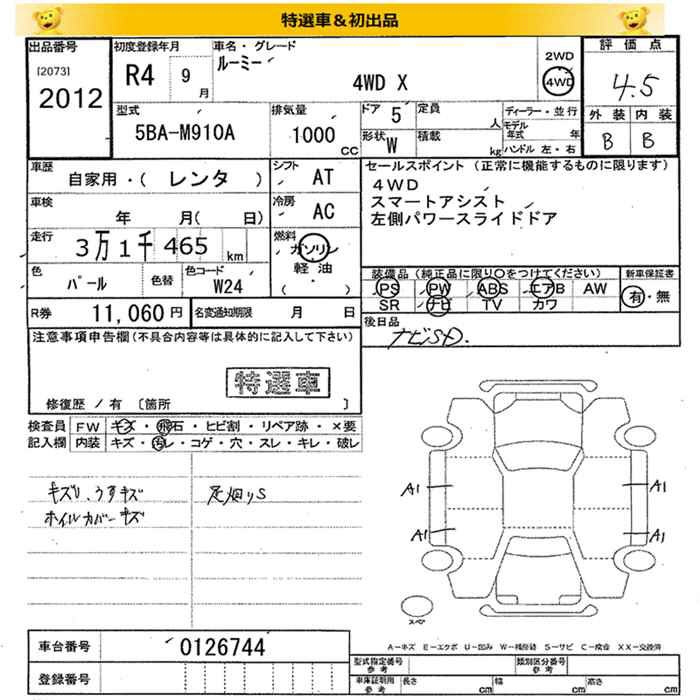 特選車&初出品
出品番号 初度登録年月 車名・グレード 評価点
[2073] R4 9月 ルーミー 2WD
2012 4WD X 4WD 4.5
型式 排気量 ドア 5 定員 人 ディーラー・並行 外装 内装
5BA-M910A 1000 CC 形状 W 積載 kg モデル年式 年 B B
ハンドル 左・右
車歴 シフト セールスポイント(正常に機能するものに限ります)
自家用・( レンタ ) AT 4WD
車検 冷房 スマートアシスト
年 月( 日) AC 左側パワースライドドア
走行 燃料
3万1千465 km ガソリン
色 色替 色コード 軽油 装備品(純正品に限り○をつけてください) 新車保証書
パール W24 ( ・ ) PS PW ABS エアB AW 有・無
SR ナビ TV カワ
R券 11,060円 名変通知期限 月 日 後日品
注意事項申告欄(不具合内容等は具体的に記入して下さい) ナビSD.
特選車
修復歴 / 有 [箇所 ]
検査員 FW キズ・飛石・ヒビ割・リペア跡・×要
記入欄 内装 キズ・汚レ・コゲ・穴・スレ・キレ・破レ
キズU、うすキズ
ホイルカバーキズ
A1 A1
A1 A1
スペア
A-キズ E-エクボ U-凹み W-補修跡 S-サビ C-腐食 XX-交換済
車台番号 0126744
登録番号
型式指定番号 参考 類別区分番号 参考
車庫証明用 参考 長さ cm 幅 cm 高さ cm